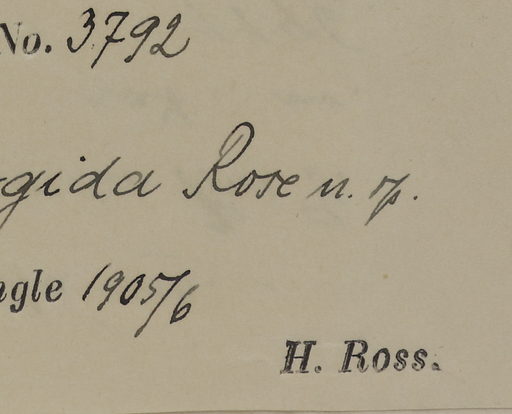 No. 3792
gida Rose n. sp.
ngle 1905/6
H. Ross.